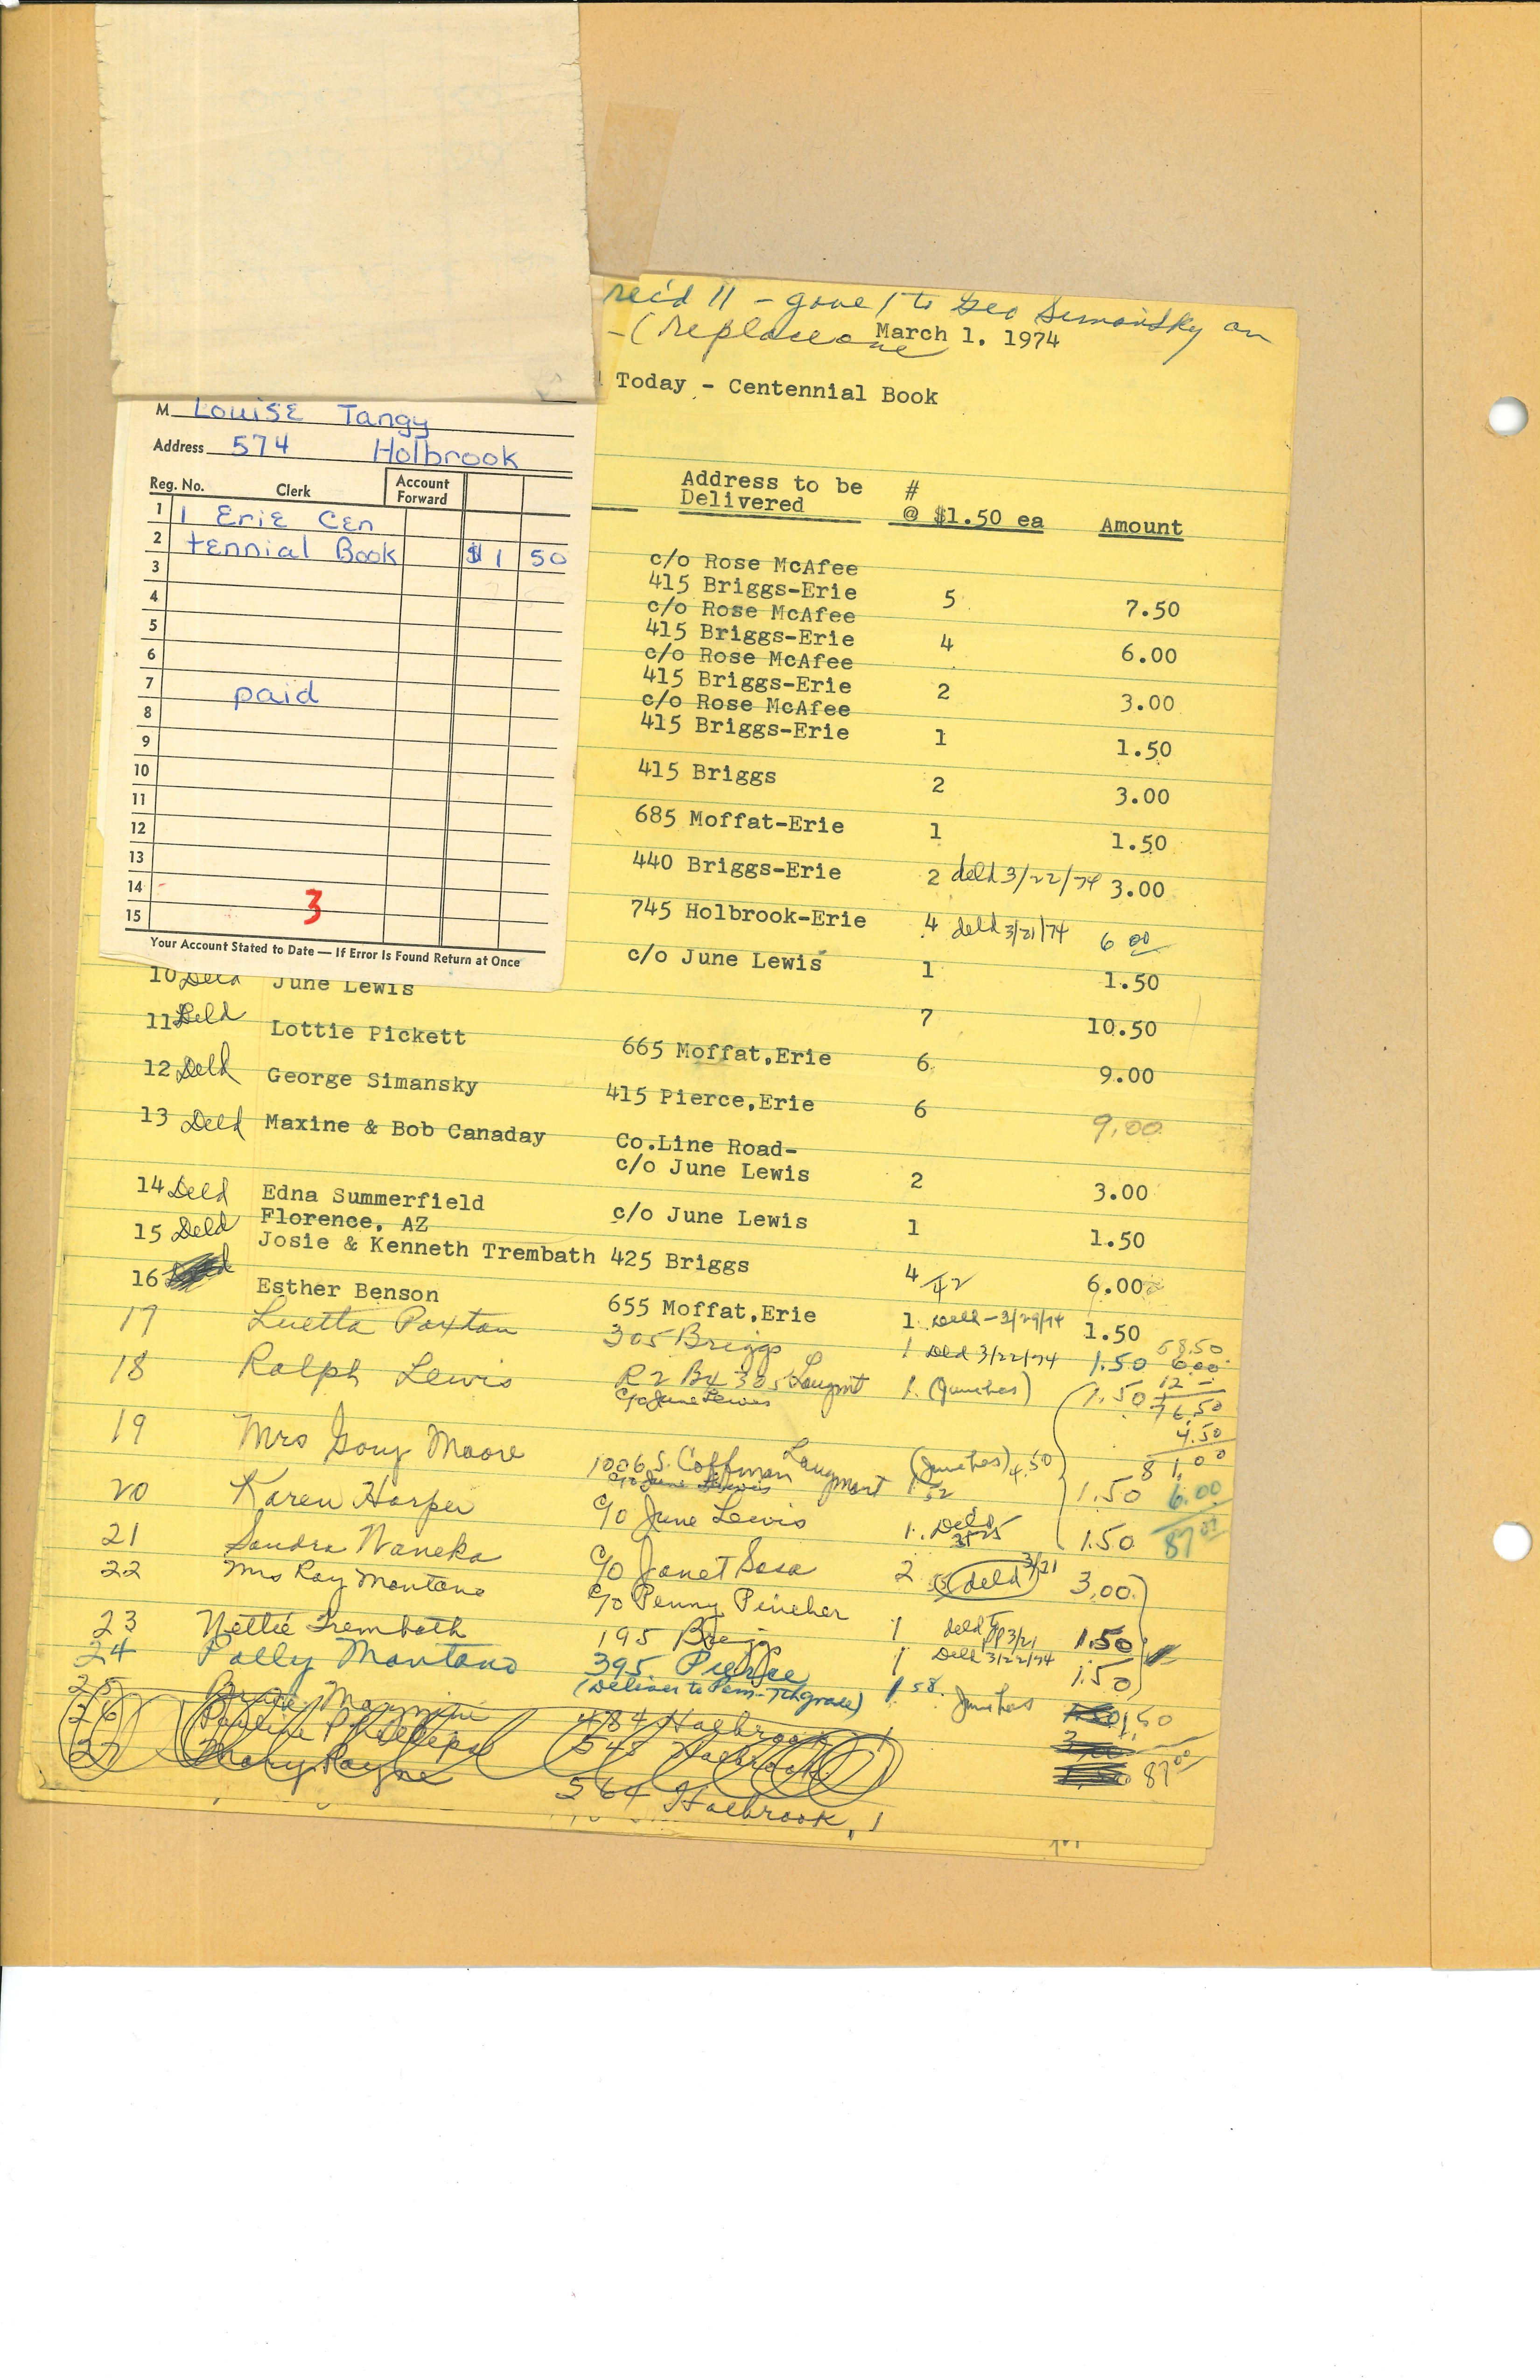 rec'd 11 - gave 1 to Geo Simansky on
- (replace one
March 1. 1974
Today - Centennial Book
M Louise Tangy
Address 574 Holbrook
Reg. No. Clerk Account Forward
1 1 Erie Cen
2 tennial Book $1 50
3
4
5
6
7 paid
8
9
10
11
12
13
14
15
3
Your Account Stated to Date — If Error Is Found Return at Once
Address to be #
Delivered @ $1.50 ea Amount
c/o Rose McAfee
415 Briggs-Erie 5 7.50
c/o Rose McAfee
415 Briggs-Erie 4 6.00
c/o Rose McAfee
415 Briggs-Erie 2 3.00
c/o Rose McAfee
415 Briggs-Erie 1 1.50
415 Briggs 2 3.00
685 Moffat-Erie 1 1.50
440 Briggs-Erie 2 deld 3/22/74 3.00
745 Holbrook-Erie 4 deld 3/21/74 6 00
c/o June Lewis 1 1.50
10 Deld June Lewis 7 10.50
11 Deld Lottie Pickett 665 Moffat,Erie 6 9.00
12 Deld George Simansky 415 Pierce,Erie 6 9.00
13 Deld Maxine & Bob Canaday Co.Line Road-
c/o June Lewis 2 3.00
14 Deld Edna Summerfield c/o June Lewis 1 1.50
Florence, AZ
15 Deld Josie & Kenneth Trembath 425 Briggs 4 42 6.00
16 Esther Benson 655 Moffat,Erie 1 Deld - 3/29/74 1.50
17 Luetta Paxton 305 Briggs 1 Deld 3/22/74 1.50
18 Ralph Lewis R2 Bx 305 Longmt 1 (June has) 1.50
c/o June Lewis
58.50
6.00
12 -
76.50
4.50
81.00
6.00
87 00
19 Mrs Gary Moore 1006 S. Coffman Longmont 1 (June has) 4.50 1.50
c/o June Lewis 52
20 Karen Harper c/o June Lewis 1 Deld 1.50
21 Sandra Waneka c/o Janet Sosa 2 deld 3/21 3.00
22 Mrs Ray Montano c/o Penny Pincher 1 deld to PP 3/21 1.50
23 Nettie Trembath 195 Briggs 1 Deld 3/22/74 1.50
24 Polly Montano 395 Pierce 1 58 June has 1.50
(Deliver to Pam - 7th grade)
25 484 Holbrook 1
26 Pauline Phillips 548 Holbrook 1
27 Mary Payne 564 Holbrook, 1
87 00